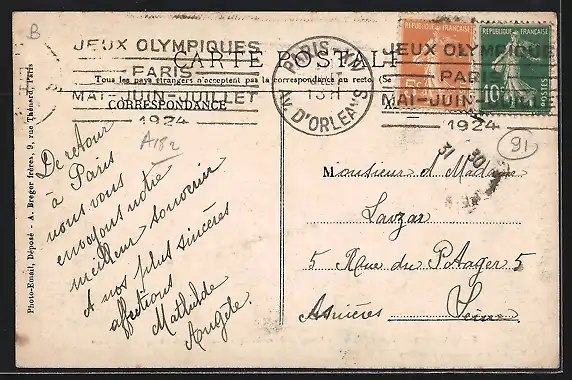 B
JEUX OLYMPIQUES
PARIS
MAI-JUIN-JUILLET
1924
CARTE POSTALE
Tous les pays étrangers n'acceptent pas la correspondance au recto. (Se
CORRESPONDANCE
PARIS
AV. D'ORLEANS
JEUX OLYMPIQUES
PARIS
MAI-JUIN-JUILLET
1924
REPUBLIQUE FRANÇAISE
5
REPUBLIQUE FRANÇAISE
10
POSTES
91
Photo-Email, Déposé - A. Breger frères, 9, rue Thénard, Paris
A182
De retour
à Paris
nous vous
envoyons notre
meilleur souvenir
A nos plus sincères
affections
Mathilde
Angèle.
Monsieur et Madame
Lavzar
5 Rue du Potager 5
Asnières Seine